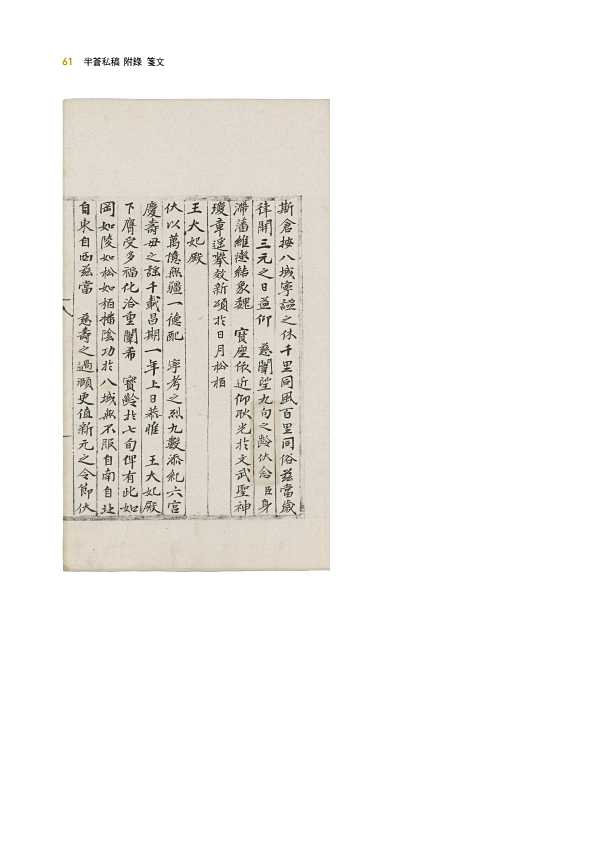 61 半蒼私稿 附錄 箋文
斯倉按八域寧謐之休千里同風百里同俗茲當歲
律開三元之日益仰 慈闈望九旬之齡伏念臣身
滯藩維戀結象魏 寶座依近仰耿光於文武聖神
瓊章遙攀效新頌於日月松栢
王大妃殿
伏以萬億無疆一德配 寧考之烈九數添紀六宮
慶壽母之謠千載昌期一年上日恭惟 王大妃殿
下膺受多福化洽重闈希 寶齡於七旬俾有此如
岡如陵如松如栢播陰功於八域無不服自南自北
自東自西茲當 慈壽之過願更値新元之令節伏